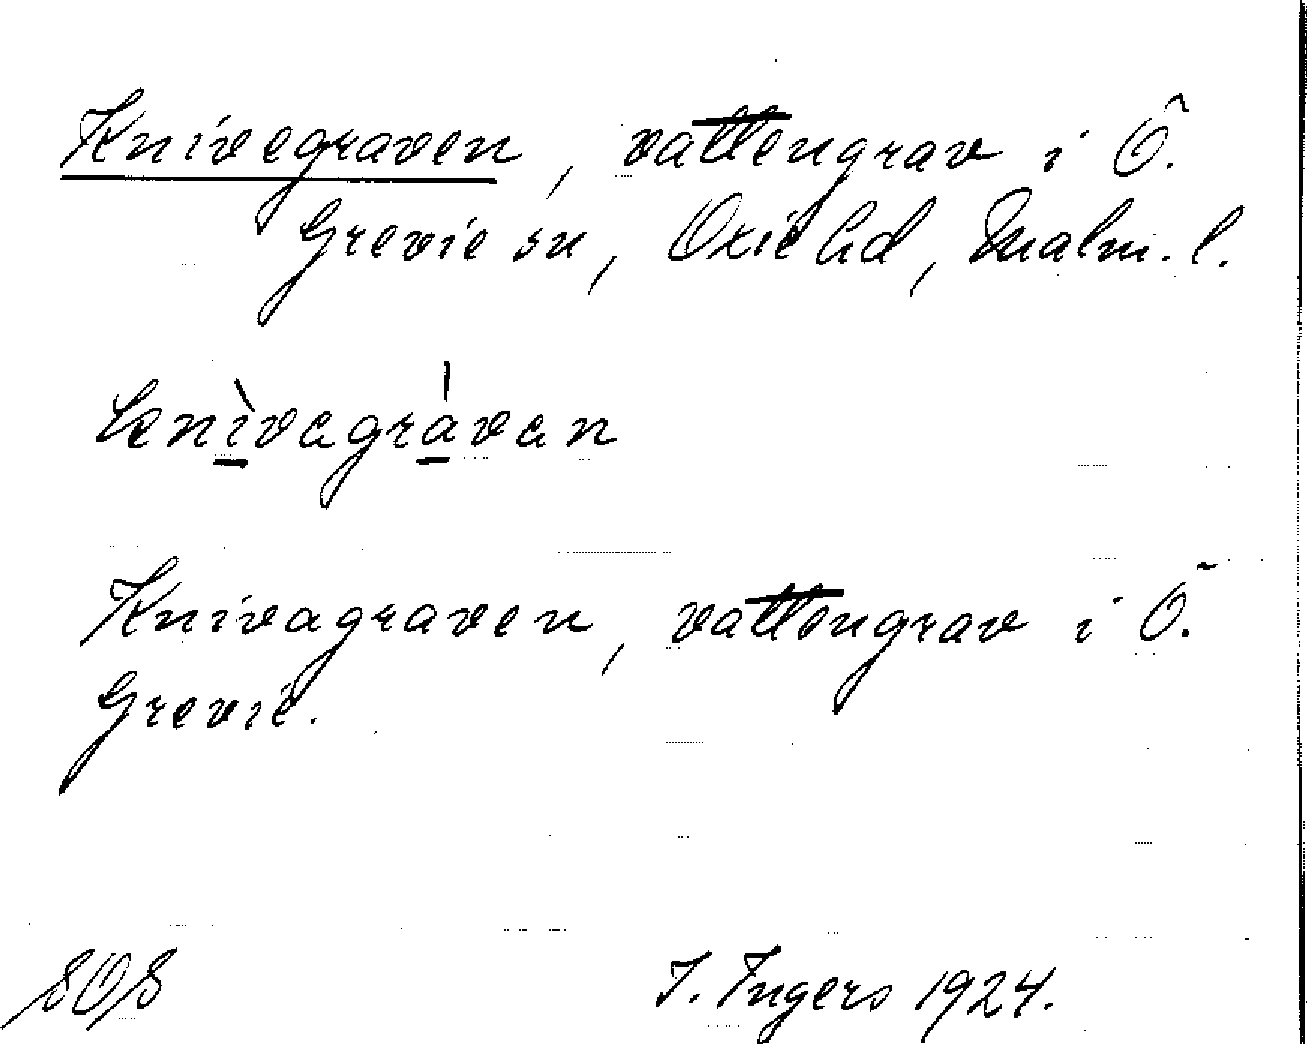 Knivegraven, vattengrav i Ö.
Grevie sn, Oxie hd, Malm. l.
knìvagrávan
Knivagraven, vattengrav i Ö.
Grevie.
SOS I. Ingers 1924.